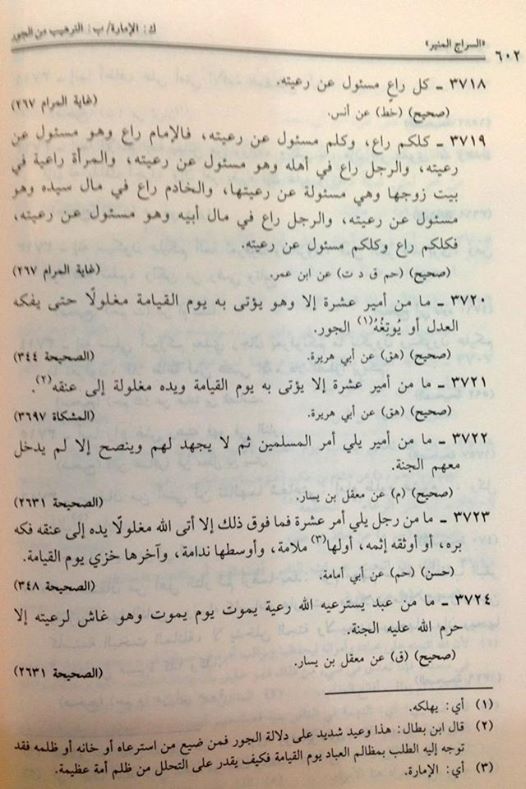 ٦٠٢ «السراج المنير» ك: الإمارة/ ب: الترهيب من الجور
٣٧١٨ ـ كل راعٍ مسئول عن رعيته.
(صحيح) (خط) عن أنس. (غاية المرام ٢٦٧)
٣٧١٩ ـ كلكم راع، وكلم مسئول عن رعيته، فالإمام راع وهو مسئول عن
رعيته، والرجل راع في أهله وهو مسئول عن رعيته، والمرأة راعية في
بيت زوجها وهي مسئولة عن رعيتها، والخادم راع في مال سيده وهو
مسئول عن رعيته، والرجل راع في مال أبيه وهو مسئول عن رعيته،
فكلكم راع وكلكم مسئول عن رعيته.
(صحيح) (حم ق د ت) عن ابن عمر. (غاية المرام ٢٦٧)
٣٧٢٠ ـ ما من أمير عشرة إلا وهو يؤتى به يوم القيامة مغلولًا حتى يفكه
العدل أو يُوتِغُهُ(١) الجور.
(صحيح) (هق) عن أبي هريرة. (الصحيحة ٣٤٤)
٣٧٢١ ـ ما من أمير عشرة إلا يؤتى به يوم القيامة ويده مغلولة إلى عنقه(٢).
(صحيح) (هق) عن أبي هريرة. (المشكاة ٣٦٩٧)
٣٧٢٢ ـ ما من أمير يلي أمر المسلمين ثم لا يجهد لهم وينصح إلا لم يدخل
معهم الجنة.
(صحيح) (م) عن معقل بن يسار. (الصحيحة ٢٦٣١)
٣٧٢٣ ـ ما من رجل يلي أمر عشرة فما فوق ذلك إلا أتى الله مغلولًا يده إلى عنقه فكه
بره، أو أوثقه إثمه، أولها(٣) ملامة، وأوسطها ندامة، وآخرها خزي يوم القيامة.
(حسن) (حم) عن أبي أمامة. (الصحيحة ٣٤٨)
٣٧٢٤ ـ ما من عبد يسترعيه الله رعية يموت يوم يموت وهو غاش لرعيته إلا
حرم الله عليه الجنة.
(صحيح) (ق) عن معقل بن يسار. (الصحيحة ٢٦٣١)
(١) أي: يهلكه.
(٢) قال ابن بطال: هذا وعيد شديد على دلالة الجور فمن ضيع من استرعاه أو خانه أو ظلمه فقد
توجه إليه الطلب بمظالم العباد يوم القيامة فكيف يقدر على التحلل من ظلم أمة عظيمة.
(٣) أي: الإمارة.